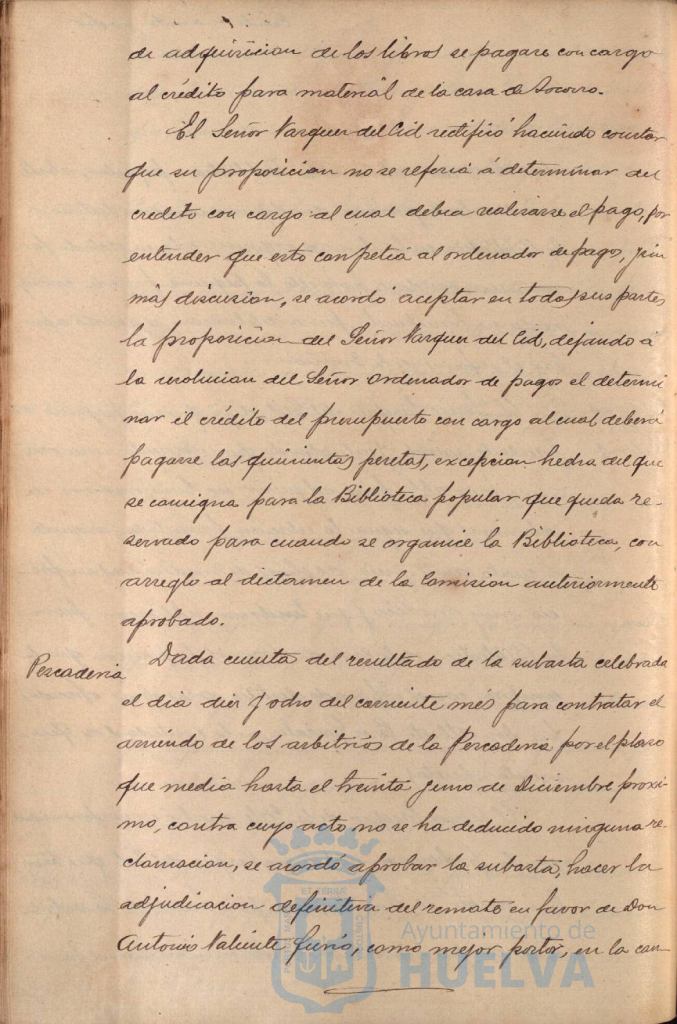 de adquisicion de los libros se pagare con cargo
al crédito para material de la casa de Socorro.
El Señor Vazquez del Cid rectificó haciendo constar
que su proposicion no se referia á determinar del
credito con cargo al cual debia realizarse el pago, por
entender que esto competia al ordenador de pagos, y sin
más discusion, se acordó aceptar en todas sus partes
la proposicion del Señor Vazquez del Cid, dejando á
la resolucion del Señor Ordenador de pagos el determi
nar el crédito del presupuesto con cargo al cual deberá
pagarse las quinientas pesetas, excepcion hecha del que
se consigna para la Biblioteca popular que queda re-
servado para cuando se organice la Biblioteca, con
arreglo al dictamen de la Comision anteriormente
aprobado.
Pescaderia
Dada cuenta del resultado de la subasta celebrada
el dia diez y ocho del corriente més para contratar el
arriendo de los arbitrios de la Pescaderia por el plazo
que media hasta el treinta y uno de Diciembre proxi-
mo, contra cuyo acto no se ha deducido ninguna re-
clamacion, se acordó aprobar la subasta, hacer la
adjudicacion definitiva del remate en favor de Don
Antonio Valiente, como mejor postor, en la can-
Ayuntamiento de
HUELVA